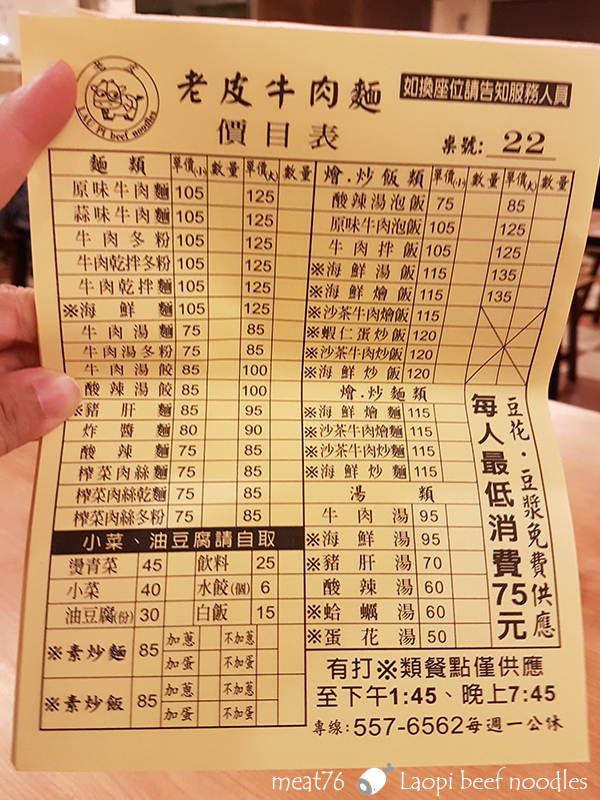 老皮
LAU PI beef noodles
老皮牛肉麵
如換座位請告知服務人員
價目表
桌號: 22
麵類 單價(小) 數量 單價(大) 數量
原味牛肉麵 105 125
蒜味牛肉麵 105 125
牛肉冬粉 105 125
牛肉乾拌冬粉 105 125
牛肉乾拌麵 105 125
※海鮮麵 105 125
牛肉湯麵 75 85
牛肉湯冬粉 75 85
牛肉湯餃 85 100
酸辣湯餃 85 100
※豬肝麵 85 95
炸醬麵 80 90
酸辣麵 75 85
榨菜肉絲麵 75 85
榨菜肉絲乾麵 75 85
榨菜肉絲冬粉 75 85
小菜、油豆腐請自取
燙青菜 45 飲料 25
小菜 40 水餃(個) 6
油豆腐(份) 30 白飯 15
※素炒麵 85 加蔥 不加蔥
加蛋 不加蛋
※素炒飯 85 加蔥 不加蔥
加蛋 不加蛋
燴.炒飯類 單價(小) 數量 單價(大) 數量
酸辣湯泡飯 75 85
原味牛肉泡飯 105 125
牛肉拌飯 105 125
※海鮮湯飯 115 135
※海鮮燴飯 115 135
※沙茶牛肉燴飯 115
※蝦仁蛋炒飯 120
※沙茶牛肉炒飯 120
※海鮮炒飯 120
燴.炒麵類
※海鮮燴麵 115
※沙茶牛肉燴麵 115
※沙茶牛肉炒麵 115
※海鮮炒麵 115
湯類
牛肉湯 95
※海鮮湯 95
※豬肝湯 70
酸辣湯 60
※蛤蠣湯 60
※蛋花湯 50
豆花．豆漿免費供應
每人最低消費75元
有打※類餐點僅供應
至下午1:45、晚上7:45
專線:557-6562每週一公休
meat76 Laopi beef noodles